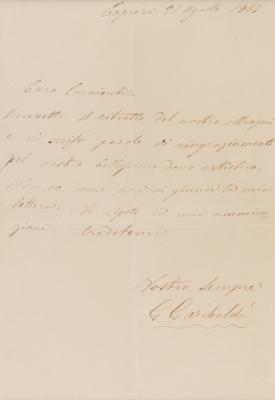 Caprera 21 Agosto 1865
Caro Carnienti
Ricevetti il ritratto del nostro
e vi scrissi parole di ringraziamento
pel vostro bellissimo dono artistico.
Non so come non vi giunse la mia
lettera. Vi ripeto la mia ammira-
zione. Credetemi
Vostro sempre
G. Garibaldi